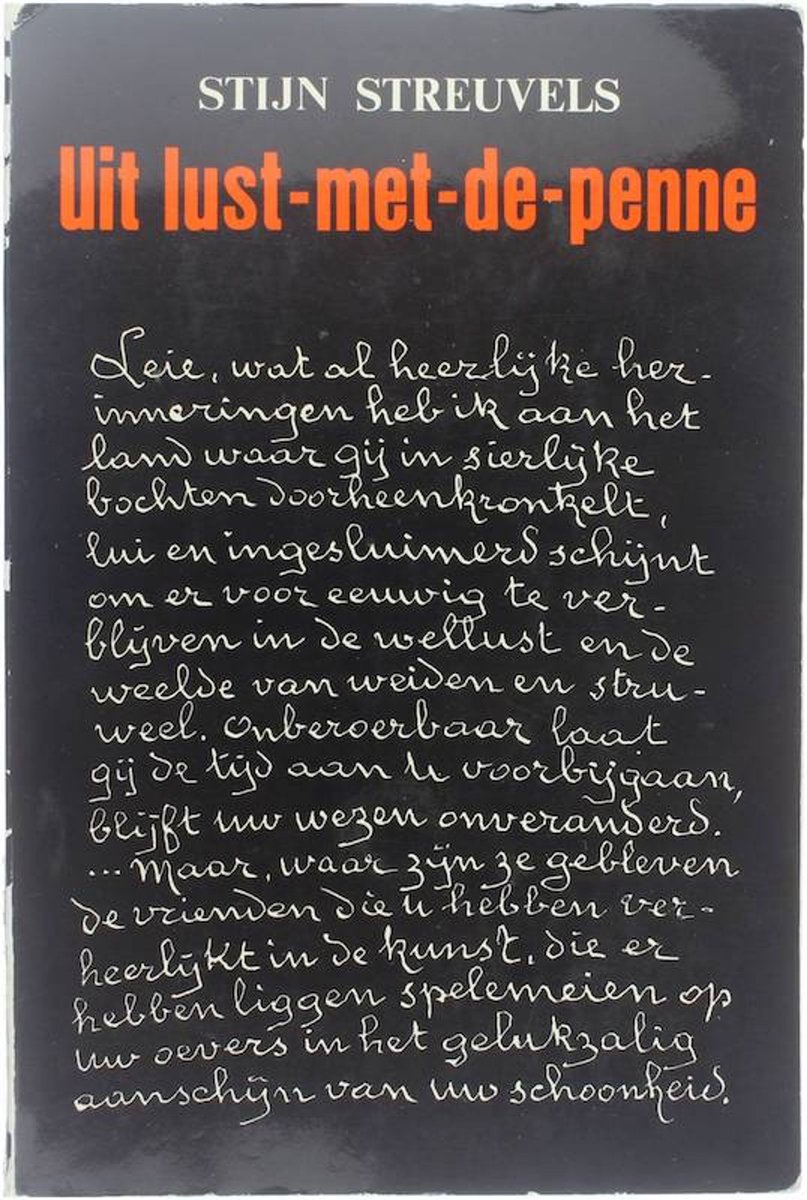 STIJN STREUVELS
Uit lust-met-de-penne
Leie, wat al heerlijke her-
inneringen heb ik aan het
land waar gij in sierlijke
bochten doorheenkronkelt,
lui en ingesluimerd schijnt
om er voor eeuwig te ver-
blijven in de wellust en de
weelde van weiden en stru-
weel. Onberoerbaar laat
gij de tijd aan u voorbijgaan,
blijft uw wezen onveranderd.
... Maar, waar zijn ze gebleven
de vrienden die u hebben ver-
heerlijkt in de kunst, die er
hebben liggen spelemeien op
uw oevers in het gelukzalig
aanschijn van uw schoonheid.